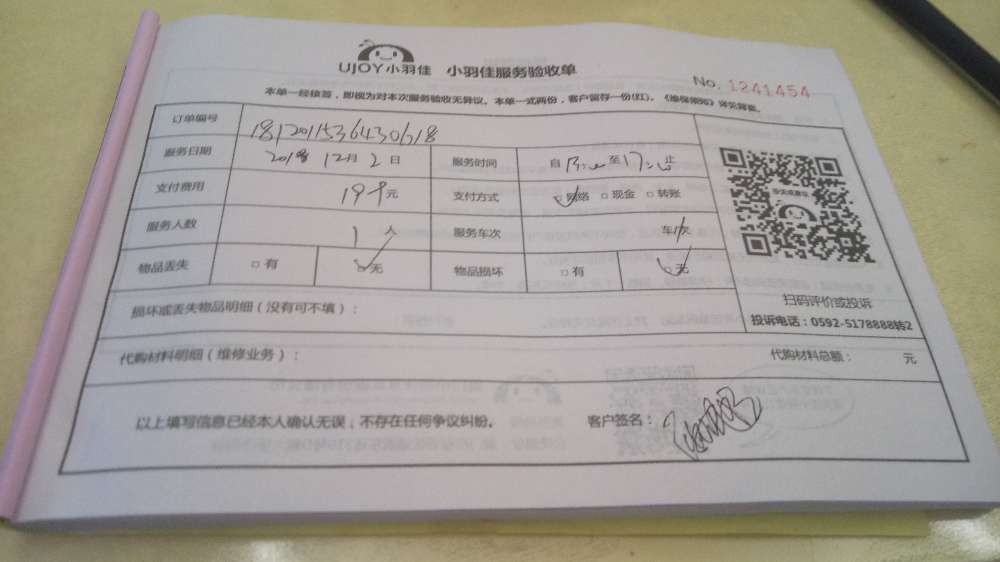 UJOY小羽佳 小羽佳服务验收单
No. 1241454
本单一经核签，即视为对本次服务验收无异议。本单一式两份，客户留存一份(红)。《维保须知》详见背面。
订单编号 181201153643068
服务日期 2018年12月2日 服务时间 自 13:00 至 17:00 止
支付费用 199元 支付方式 网络 □现金 □转账
服务人数 1人 服务车次 车/次
物品丢失 □有 □无 物品损坏 □有 □无
扫码评价或投诉
损坏或丢失物品明细（没有可不填）：
投诉电话：0592-5178888转2
代购材料明细（维修业务）： 代购材料总额： 元
以上填写信息已经本人确认无误，不存在任何争议纠纷。 客户签名：